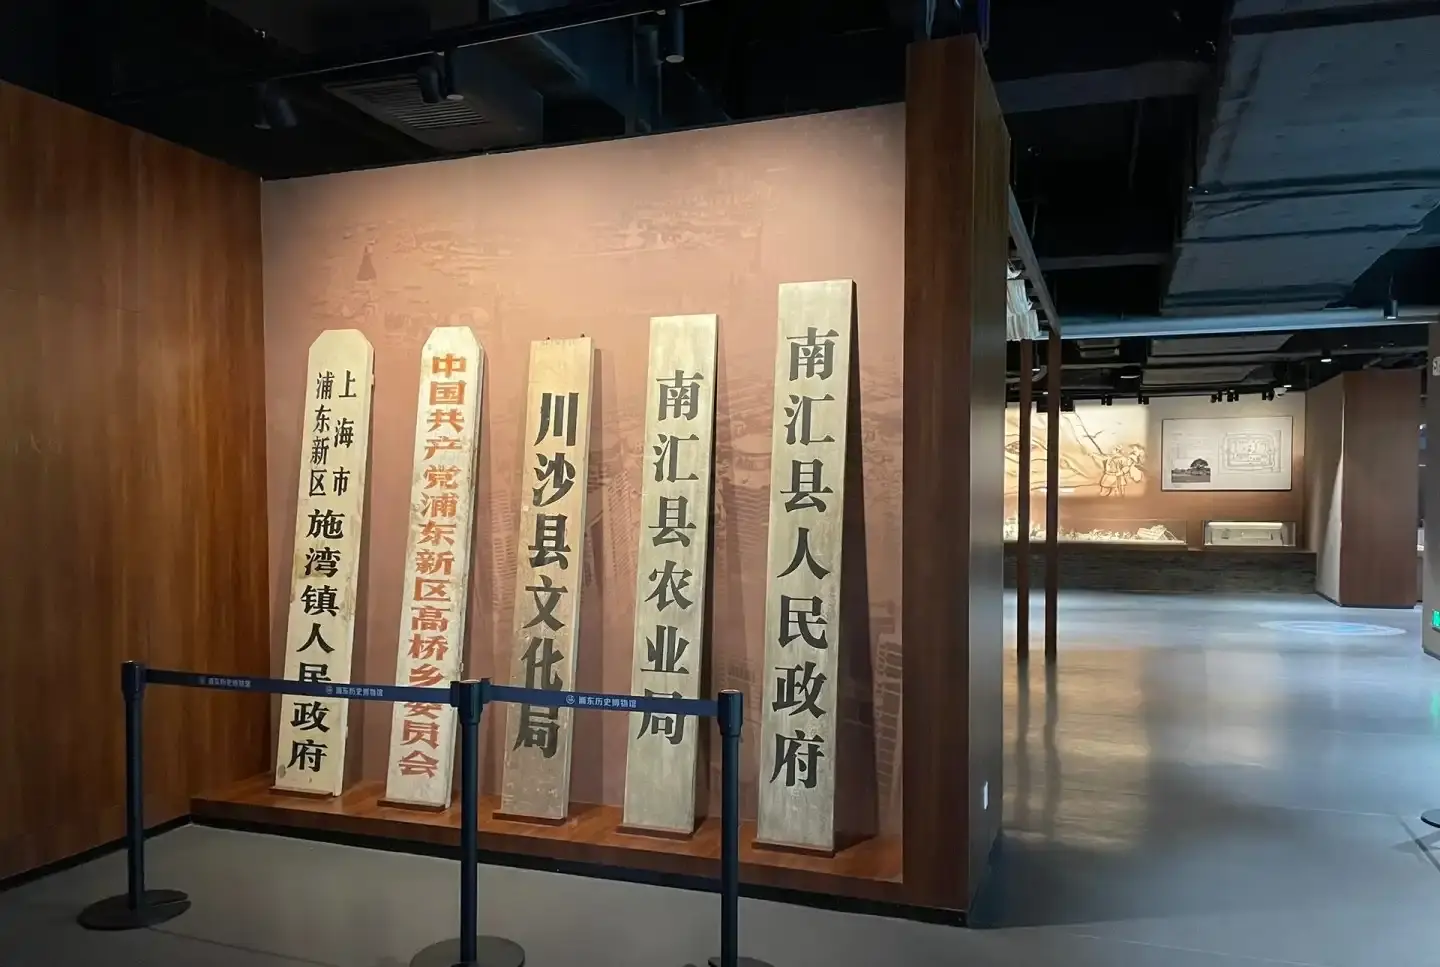 上海市
浦东新区
施湾镇人民政府
中国共产党浦东新区高桥乡委员会
川沙县文化局
南汇县农业局
南汇县人民政府
浦东历史博物馆
浦东历史博物馆
浦东历史博物馆